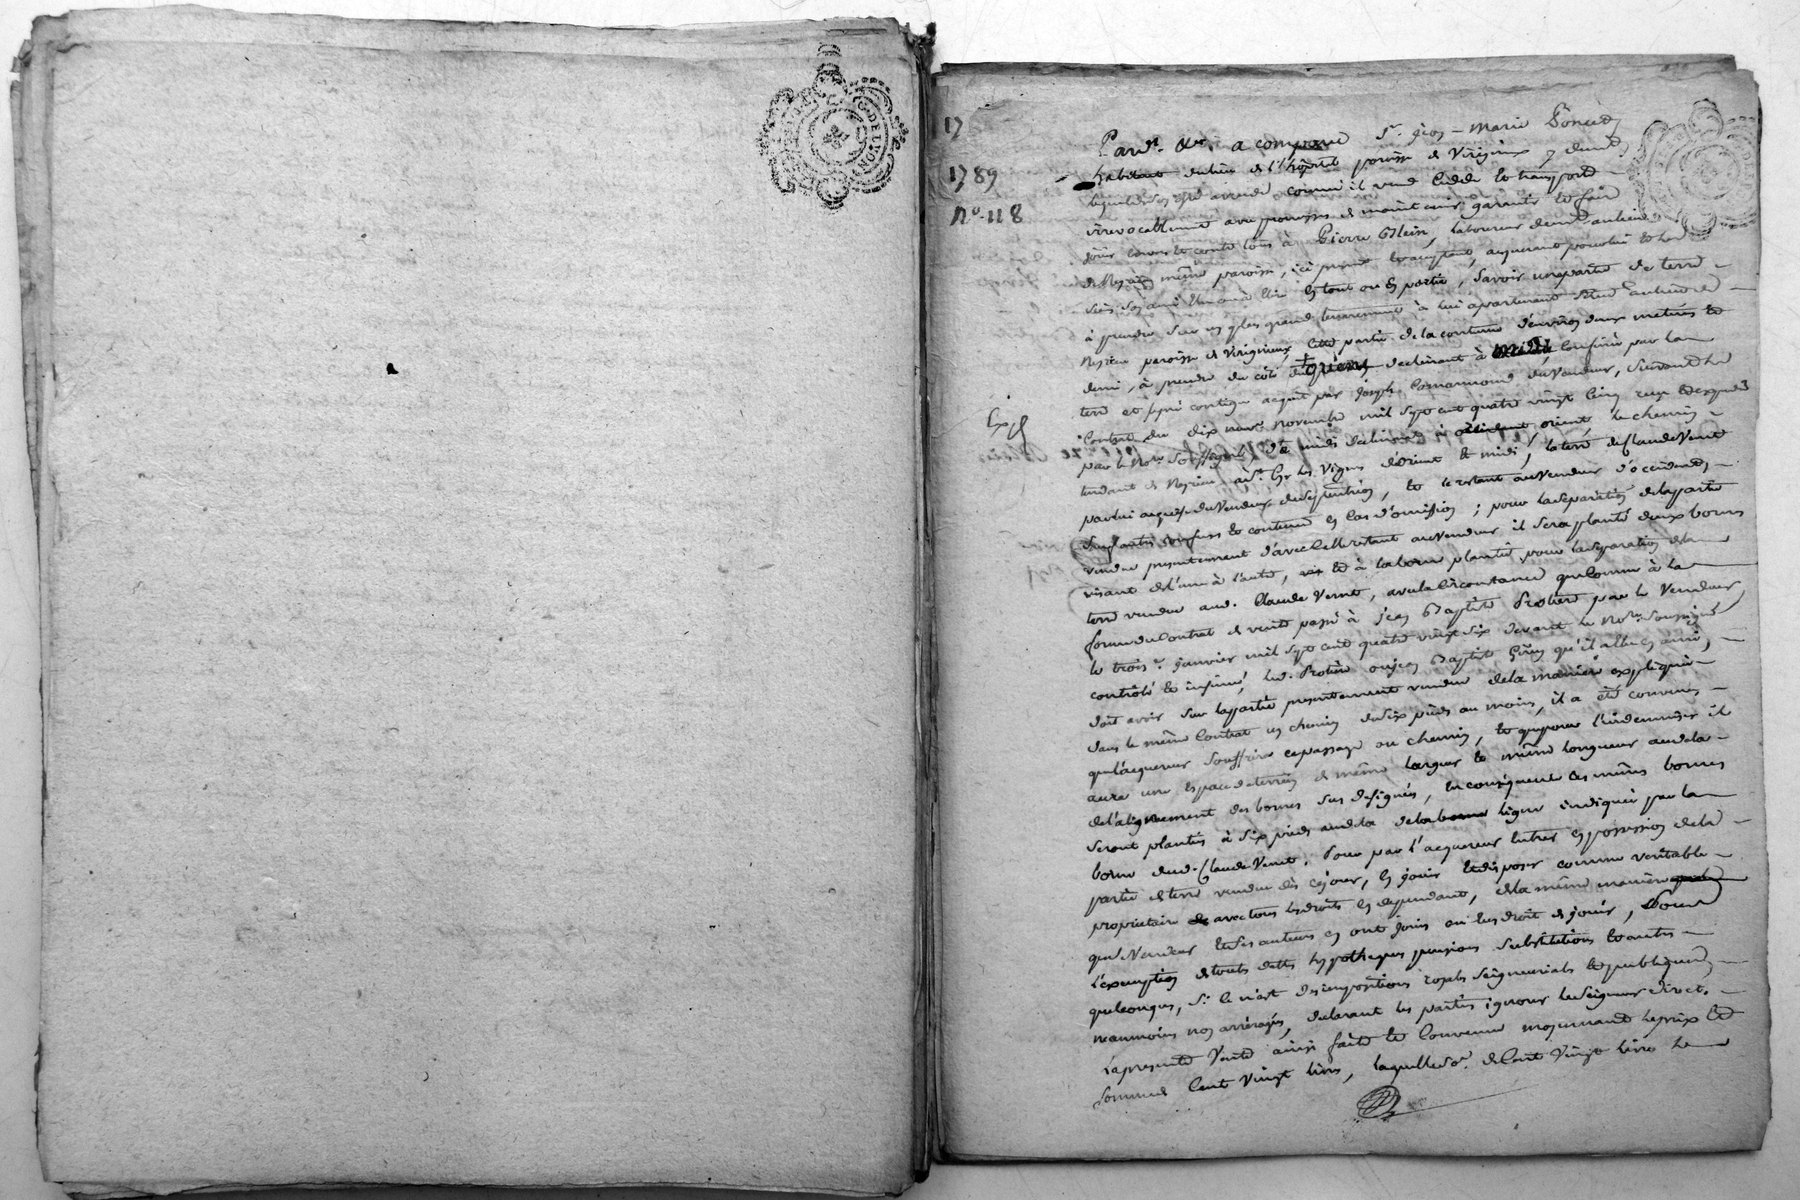 G. DE LYON
17
1789
N.o 118
Expé
Pard.t &c. a comparu S.r jean-Marie Poncet
habitant du lieu de l'hôpital paroisse de Virigneux, y demt
lequel de son gré a vendu comme il vend cedde et transporte
irrevocablement avec promesses de maintenir garantir et faire
jouir envers et contre tous à Pierre Blein, laboureur demt au lieu
de Nezieu même paroisse, ici present et acceptant, acquerant pour lui et les
siens son ami élu ou à élire en tout ou en partie, Savoir une partie de terre
à prendre sur un plus grand tenement à lui apartenant situé au lieu de
Nezieu paroisse de Virigneux, cette partie de la contenue d'environ deux metères et
demi, à prendre du côté d'orient declinant à midi, confinée par la
terre et pré contigu acquit par joseph du Vendeur, suivant le
Contrat du dix neuf novembre mil sept cent quatre vingt cinq reçu et expedié
par le No.re Soussigné de midi declinant à orient le chemin
tendant de Nezieu à S.t Cyr les Vignes d'orient et midi, la terre de Claude Venet
par lui acquise du Vendeur du septentrion, et le restant au Vendeur d'occident,
Sauf autres confins et contenue en cas d'omission; pour la separation de la partie
vendue presentement d'avec celle restant au Vendeur il sera planté deux bornes
visant de l'une à l'autre, et à la borne plantée pour la separation de la
terre vendue aud. Claude Venet, avec la circonstance que comme à la
forme du Contrat de vente passé à jean Baptiste Protière par le Vendeur
le trois.e janvier mil sept cent quatre vingt six devant le No.re Soussigné
contrôlé et insinué, led. Protière ou jean Baptiste qu'il a élu en ami,
doit avoir sur la partie presentement vendue de la manière expliquée
dans le même Contrat un chemin de six pieds au moins, il a été convenu
que l'acquereur souffrira ce passage ou chemin, et que pour l'indemniser il
aura une espace de terrein de même largeur et même longueur au dela
de l'alignement des bornes sus designés, en consequence ces mêmes bornes
seront plantées à six pieds au dela de la ligne indiquée par la
borne dud. Claude Venet. Pour par l'acquereur entrer en possession de la
partie de terre vendue dès ce jour, en jouir et disposer comme veritable
proprietaire avec tous les droits en dependants, de la même manière
que le Vendeur et ses auteurs en ont joui ou eu droit de jouir, Sous
l'exemption de toutes dettes hypotheques pensions substitutions et autres
quelconques, si ce n'est des impositions royales seigneuriales et publiques
neanmoins non arréragés, declarant les parties ignorer le Seigneur direct.
La presente Vente ainsi faite et convenue moyennant le prix et
somme de Cent Vingt livres, laquelle so.e de Cent Vingt livres le